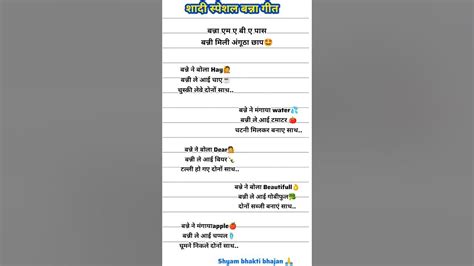 शादी स्पेशल बन्ना गीत
बन्ना एम ए बी ए पास
बन्नी मिली अंगूठा छाप🤩
बन्ने ने बोला Hay🙋
बन्नी ले आई चाए☕
चुस्की लेवे दोनों साथ..
बन्ने ने मंगाया water💦
बन्नी ले आई टमाटर 🍅
चटनी मिलकर बनाए साथ..
बन्ने ने बोला Dear🙋
बन्नी ले आई बियर🍾
टल्ली हो गए दोनों साथ..
बन्ने ने बोला Beautifull👌
बन्नी ले आई गोबीफूल🥦
दोनों सब्जी बनाएं साथ..
बन्ने ने मंगायाapple🍎
बन्नी ले आई चप्पल🩴
घूमने निकले दोनों साथ..
Shyam bhakti bhajan 🙏